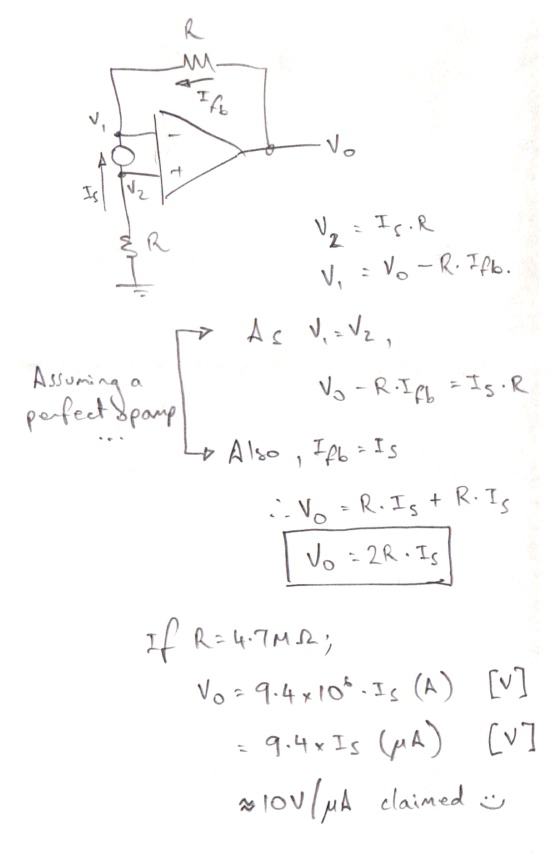 R
I fb
V1
-
Vo
A
+
Is
V2
R
V2 = Is.R
V1 = Vo - R.Ifb.
As V1 = V2,
Assuming a
perfect opamp
...
Vo - R.Ifb = Is.R
Also, Ifb = Is
∴ Vo = R.Is + R.Is
Vo = 2R.Is
If R = 4.7MΩ;
Vo = 9.4x10⁶.Is (A) [V]
= 9.4 x Is (μA) [V]
≈ 10V/μA claimed :)